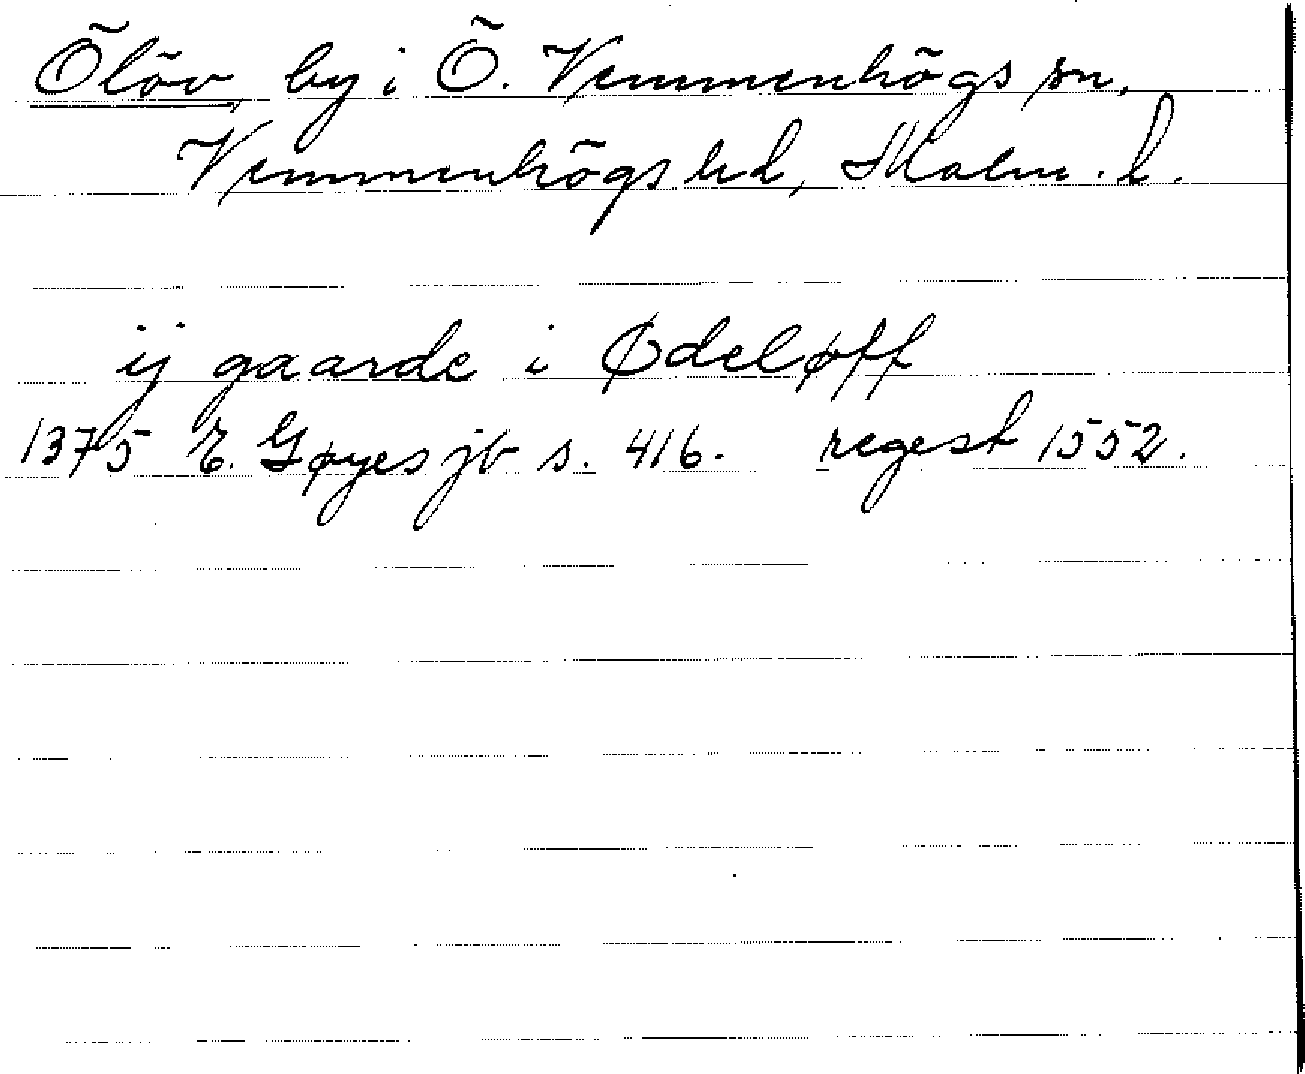 Ölöv, by i Ö. Vemmenhögs sn,
Vemmenhögs hd, Malm. l.
ij gaarde i Ødeløff
1375 E. Gøyes jb s. 416. regest 1552.